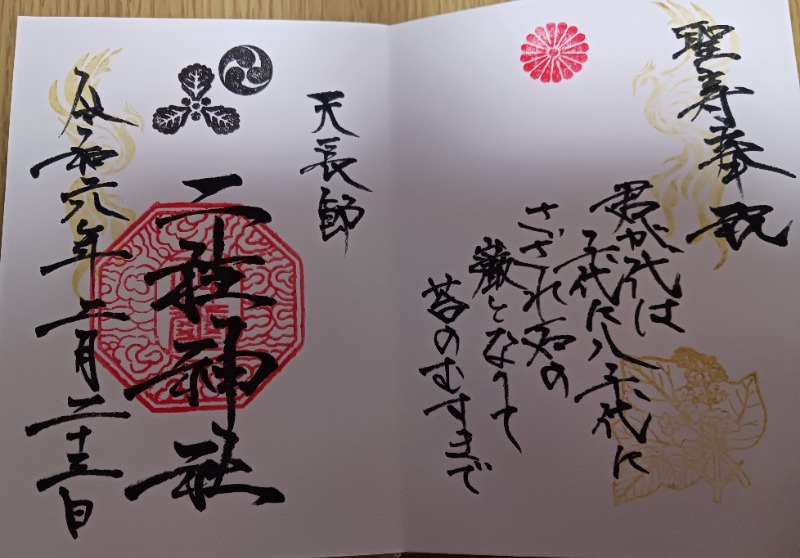 聖寿奉祝
君が代は
千代に八千代に
さざれ石の
巌となりて
苔のむすまで
天長節
二社神社
令和六年二月二十三日